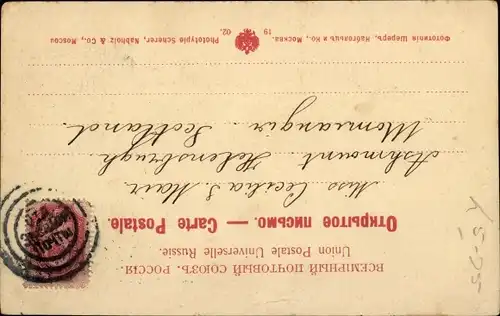 ВСЕМІРНЫЙ ПОЧТОВЫЙ СОЮЗЪ. РОССІЯ.
Union Postale Universelle Russie.
Открытое письмо. — Carte Postale.
Miss Cecilia S. Mair
Ashmount Helensburgh.
Scotland.
19 02.
Фототипія Шереръ, Набгольцъ и Ко., Москва.
Phototypie Scherer, Nabholz & Co., Moscou